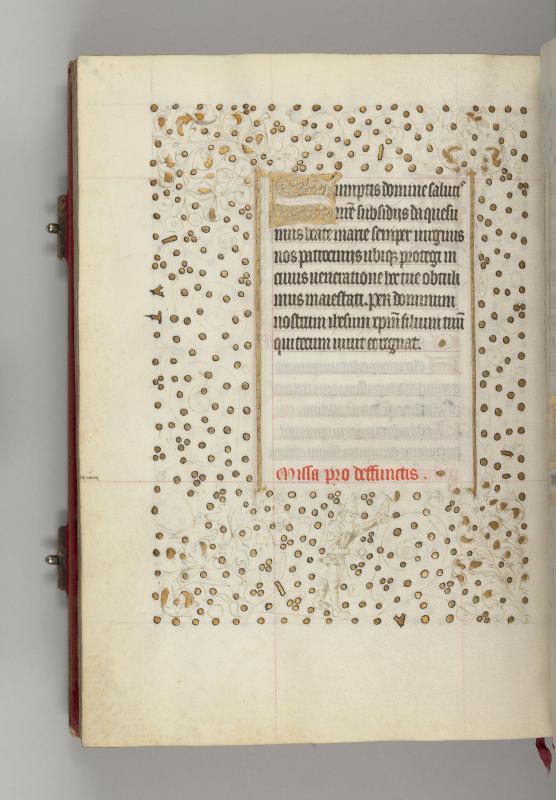 Sumptis domine saluti
nr̃e subsidijs da quesu
mus beate marie semper uirginis
nos patrocinijs ubiqȝ protegi in
cuius ueneratione hec tue obtuli
mus maiestati. Per dominum
nostrum ihesum xp̃m filium tuũ
qui tecum uiuit et regnat.
Missa pro deffunctis.